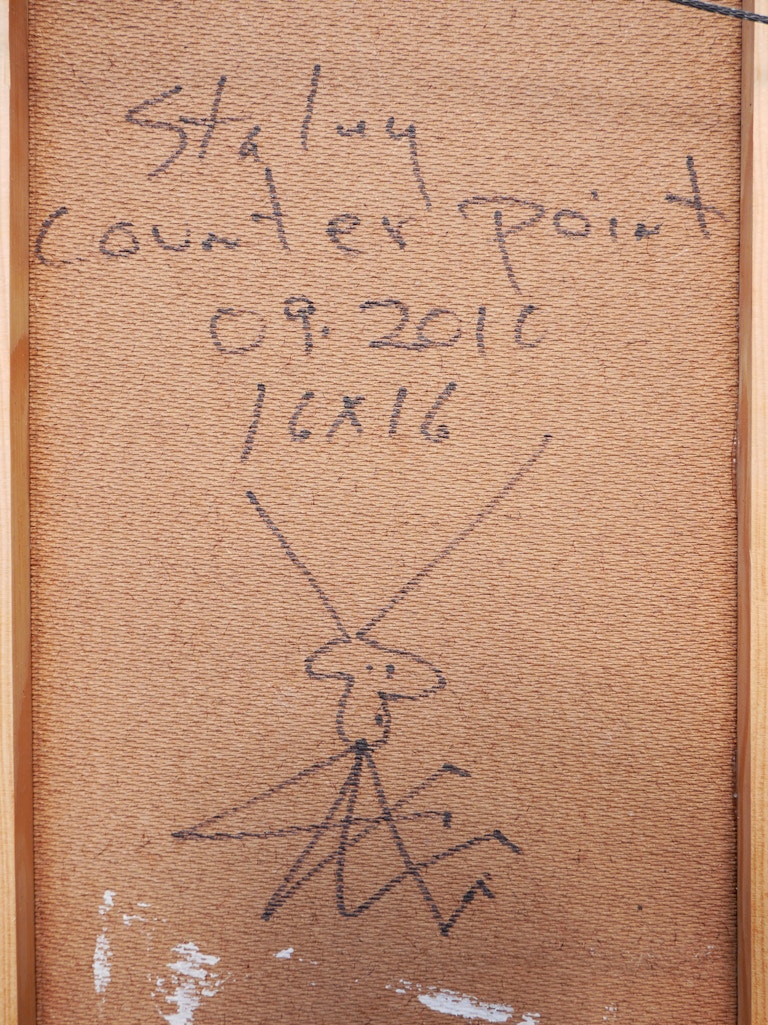 Staley
Counter point
09.2010
16x16